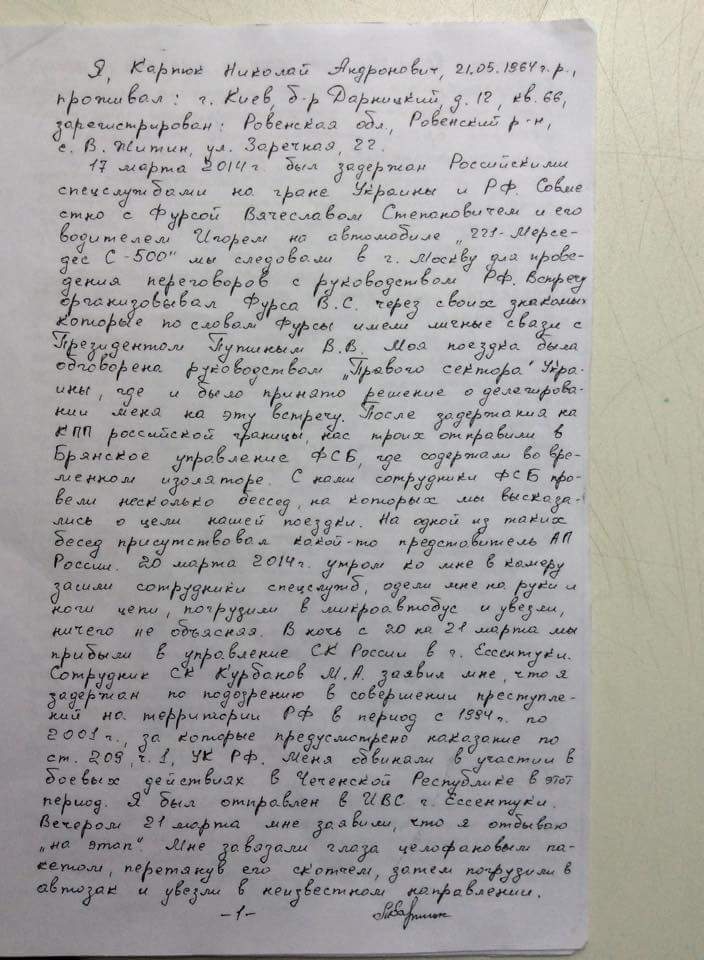 Я, Карпюк Николай Андронович, 21.05.1964 г.р.,
проживал: г. Киев, б-р Дарницкий, д. 12, кв. 66,
зарегистрирован: Ровенская обл., Ровенский р-н,
с. В. Житин, ул. Заречная, 22.
17 марта 2014 г. был задержан Российскими
спецслужбами на гране Украины и РФ. Совме
стно с Фурсой Вячеславом Степановичем и его
водителем Игорем на автомобиле „221-Мерсе-
дес С-500" мы следовали в г. Москву для прове-
дения переговоров с руководством РФ. Встречу
организовывал Фурса В.С. через своих знакомых
которые по словам Фурсы имели личные связи с
Президентом Путиным В.В. Моя поездка была
обговорена руководством „Правого сектора" Укра-
ины, где и было принято решение о делегирова-
нии меня на эту встречу. После задержания на
КПП российской границы, нас троих отправили в
Брянское управление ФСБ, где содержали во вре-
менном изоляторе. С нами сотрудники ФСБ про-
вели несколько бесед, на которых мы высказа-
лись о цели нашей поездки. На одной из таких
бесед присутствовал какой-то представитель АП
России. 20 марта 2014 г. утром ко мне в камеру
засили сотрудники спецслужб, одели мне на руки и
ноги цепи, погрузили в микроавтобус и увезли,
ничего не объясняя. В ночь с 20 на 21 марта мы
прибыли в управление СК России в г. Ессентуки.
Сотрудник СК Курбанов М.А. заявил мне, что я
задержан по подозрению в совершении преступле-
ний на территории РФ в период с 1994 г. по
2001 г., за которые предусмотрено наказание по
ст. 209, ч. 1, УК РФ. Меня обвиняли в участии в
боевых действиях в Чеченской Республике в этот
период. Я был отправлен в ИВС г. Ессентуки.
Вечером 21 марта мне заявили, что я отбываю
„на этап". Мне завязали глаза целофановым па-
кетом, перетянув его скотчем, затем погрузили в
автозак и увезли в неизвестном направлении.
-1- Карпюк